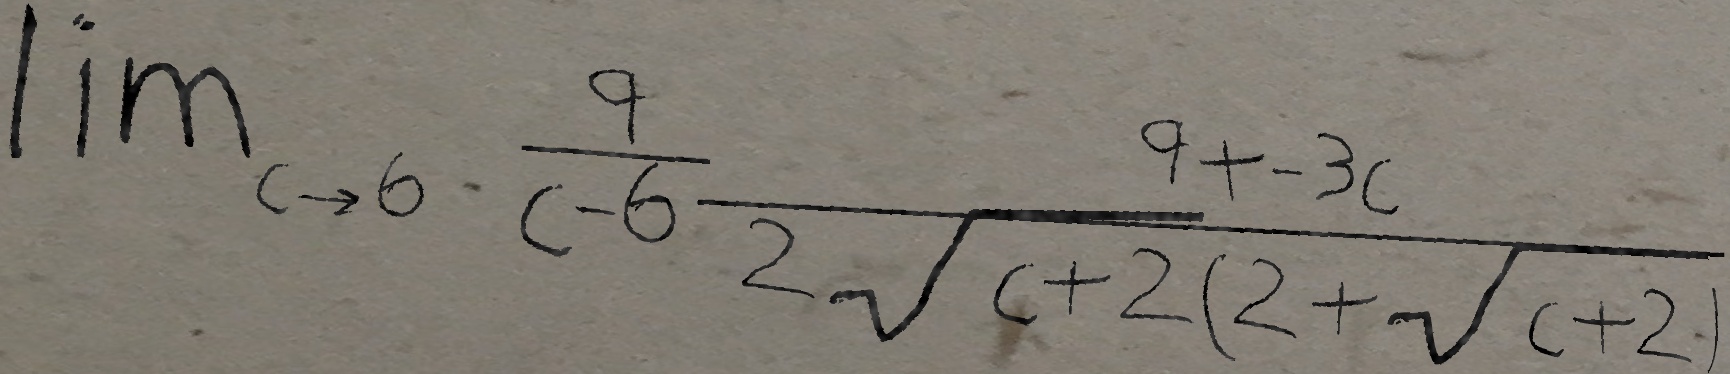 \lim_{c \to 6} \frac{9}{c-6} \frac{9+-3c}{2\sqrt{c+2}(2+\sqrt{c+2})}